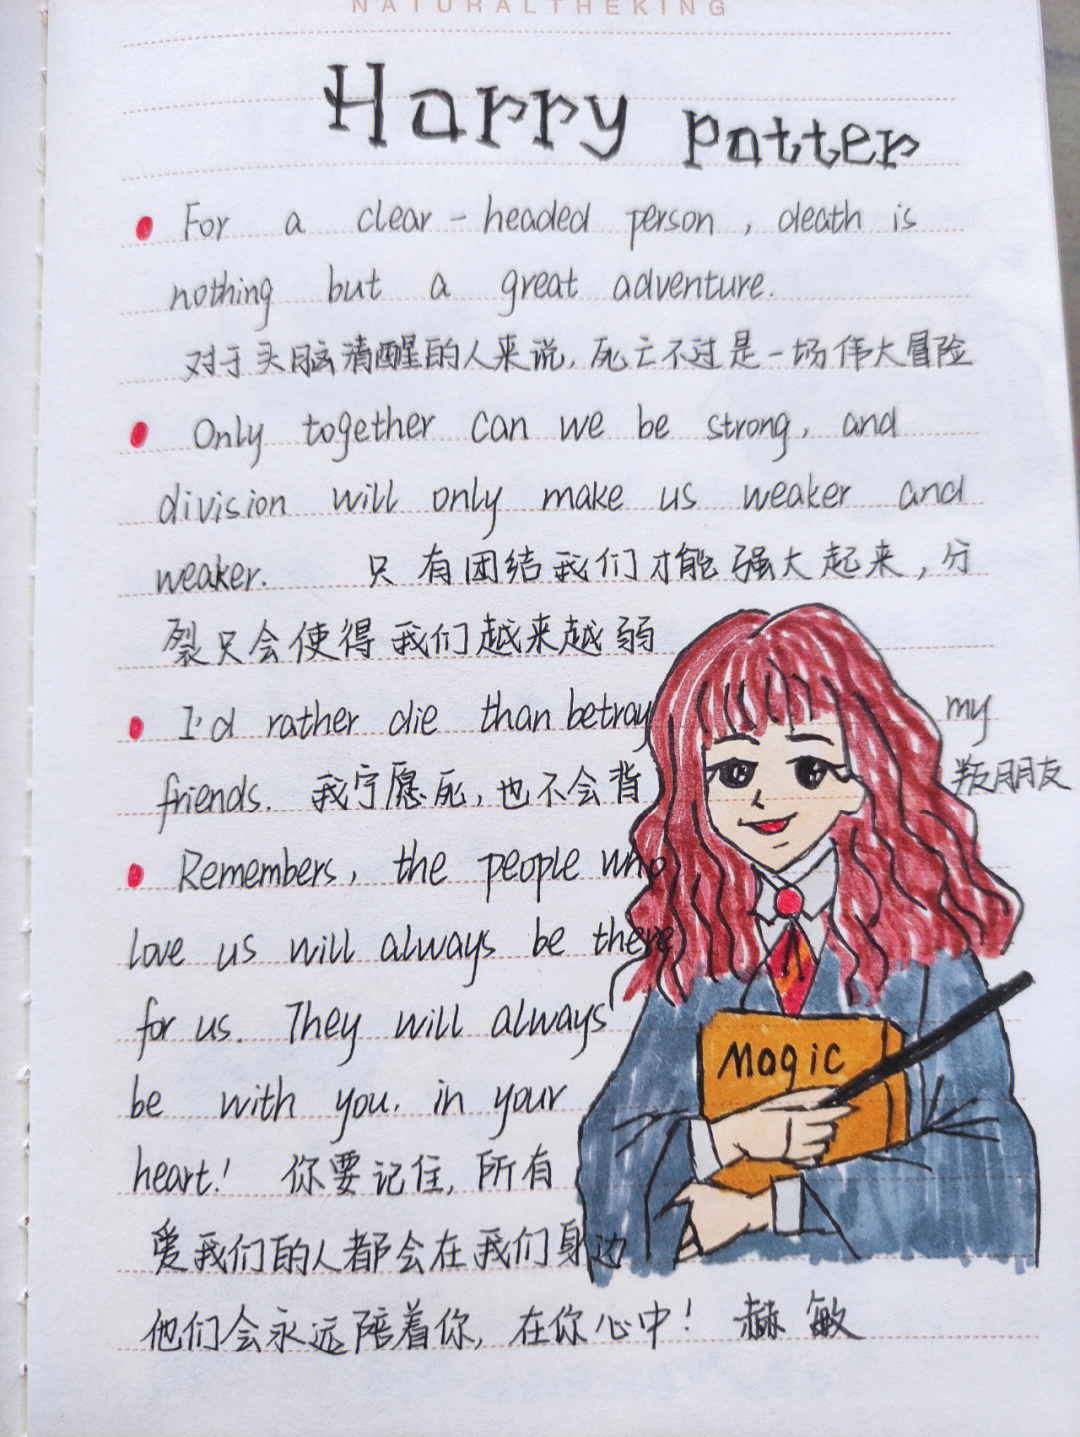 NATURALTHEKING
Harry Potter
For a clear-headed person, death is
nothing but a great adventure.
对于头脑清醒的人来说,死亡不过是一场伟大冒险
Only together can we be strong, and
division will only make us weaker and
weaker. 只有团结我们才能强大起来,分
裂只会使得我们越来越弱
I'd rather die than betray my
friends. 我宁愿死,也不会背叛朋友
Remembers, the people who
love us will always be there
for us. They will always
be with you. in your
heart! 你要记住,所有
爱我们的人都会在我们身边
他们会永远陪着你,在你心中! 赫敏
Magic